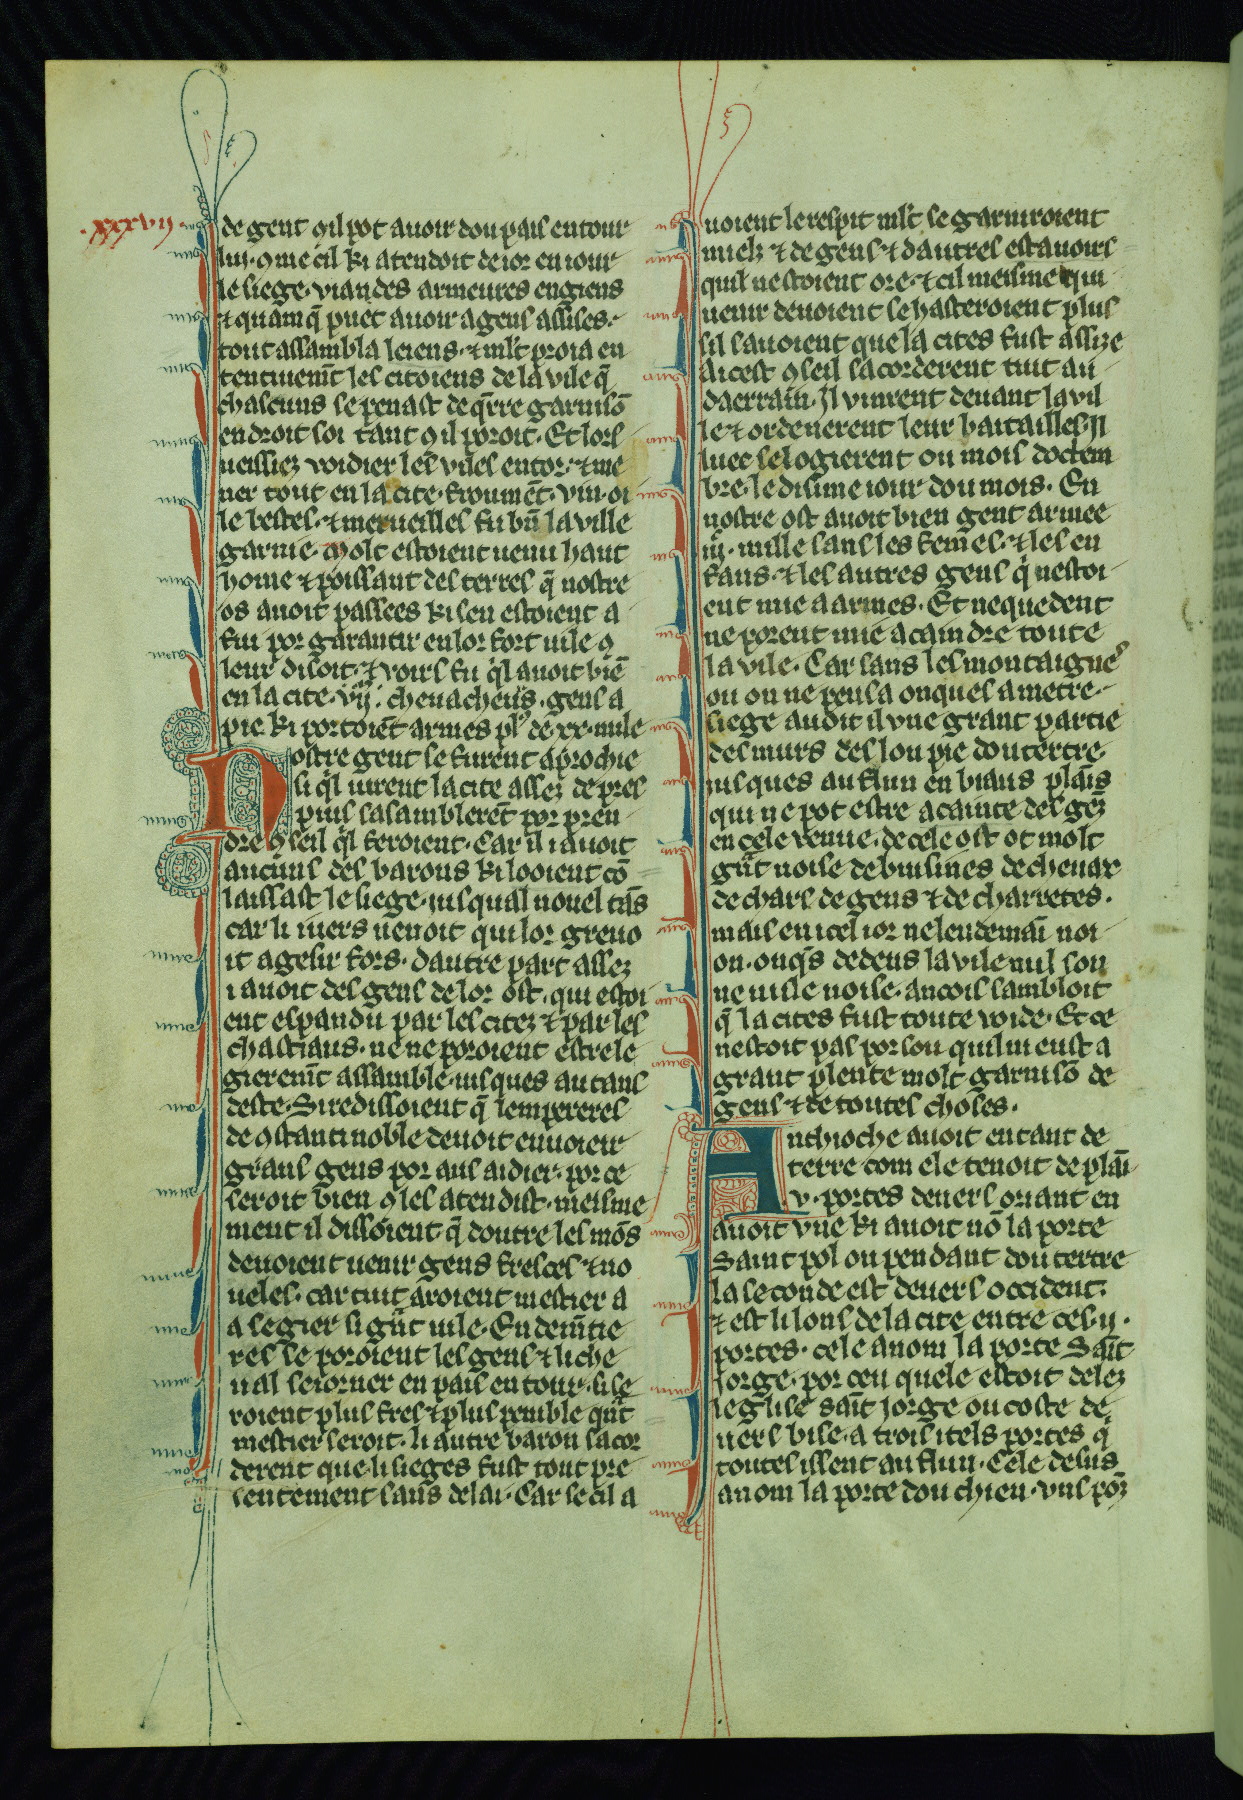 .xxxvij.
de gent ꝯil pot auoir dou pais entour
lui. ꝯme cil ki atendoit de ior en iour
le siege. viandes armeures engiens
⁊ quamq̃ puet auoir a gens assises.
tout assambla leiens. ⁊ ml't proia en
tentiuem̄t les citoiens de la vile q̃
chascuns se penast de q̃rre garnisō
endroit soi tant ꝯil poroit. Et lors
ueissiez voidier les viles entor. ⁊ me
ner tout en la cite. froument. vin. oi
le bestes. ⁊ merueilles fu bn̄ la ville
garnie. Molt estoient uenu haut
home ⁊ poissant des terres q̃ nostre
os auoit passees ki sen estoient a
fui por garantir en lor fort vile ꝯ
leur disoit. ⁊ voirs fu q̾l auoit biē
en la cite .vij. cheuacheurs. gens a
pie ki portoiēt armes plꝰ de .xx. mile
Nostre gent se furent aprochie
si q̾l uirent la cite assez de pres
puis sasamblerēt por pren
dre ꝯseil q̾l feroient. Car il i auoit
aucuns des barons ki looient cō
laissast le siege. iusqual nouel tās
car li iuers uenoit qui lor greuo
it a gesir fors. dautre part assez
i auoit des gens de lor ost. qui estoi
ent espandu par les citez ⁊ par les
chastiaus. ne ne poroient estre le
gierem̄t assamble. iusques au tans
deste. Si redissoient q̃ lempereres
de ꝯstantinoble deuoit enuoieir
grans gens por aus aidier. por ce
seroit bien ꝯ les atendist. meisme
ment il dissoient. q̃ doutre les mōs
deuoient uenir gens fresces ⁊ no
ueles. car tuit aroient mestier a
a segier si gnt uile. En dem̄tie
res se poroient les gens ⁊ li che
ual seiorner en pais entour. si se
roient plus fres ⁊ plus penible qnt
mestier seroit. li autre baron sacor
derent que li sieges fust tout pre
sentement sans delai. Car se cil a
uoient le respit ml't se garniroient
mielz ⁊ de gens ⁊ dautres estauoirs
quil nestoient ore. ⁊ cil meisme qui
uenir deuoient se hasteroient plus
sil sauoient que la cites fust assize
A icest ꝯseil sacorderent tuit au
daerrain. Jl vinrent deuant la vil
le ⁊ ordenerent leur baitailles. Jl
luec se logierent ou mois doctem
bre. le disime iour dou mois. En
nostre ost auoit bien gent armee
.iij. mille sans les femes. ⁊ les en
fans. ⁊ les autres gens q̾ nestoi
ent mie a armes. Et nequedent
ne porent mie acaindre toute
la vile. Car sans les montaignes
ou on ne pensa onques a metre
siege audit il vne grant partie
des murs des lou pie dou tertre
iusques au flun en biaus plains
qui ne pot estre acainte des gēz
en cele venue. de cele ost ot molt
gnt noise de buisines de cheuax
de chars de gens ⁊ de charretes.
mais en icel ior ne lendemai noi
on. onqs dedens la vile nul son
ne nisle noise. ancois sambloit
q̃ la cites fust toute wide. Et ce
nestoit pas por sou quil ni eust a
grant plente molt garnisō de
gens ⁊ de toutes choses.
Anthioche auoit en tant de
terre com ele tenoit de plai
.v. portes deuers oriant en
auoit vne ki auoit nō la porte
Saint pol ou pendant dou tertre
la seconde est deuers occident.
⁊ est li lons de la cite entre ces .ij.
portes. cele anom la porte Sait
Jorge. por ceu quele estoit delez
leglise sait Jorge ou coste de
uers bise. a trois itels portes q̃
toutes issent au flun. Cele desus
anom la porte dou chien. vns pōz